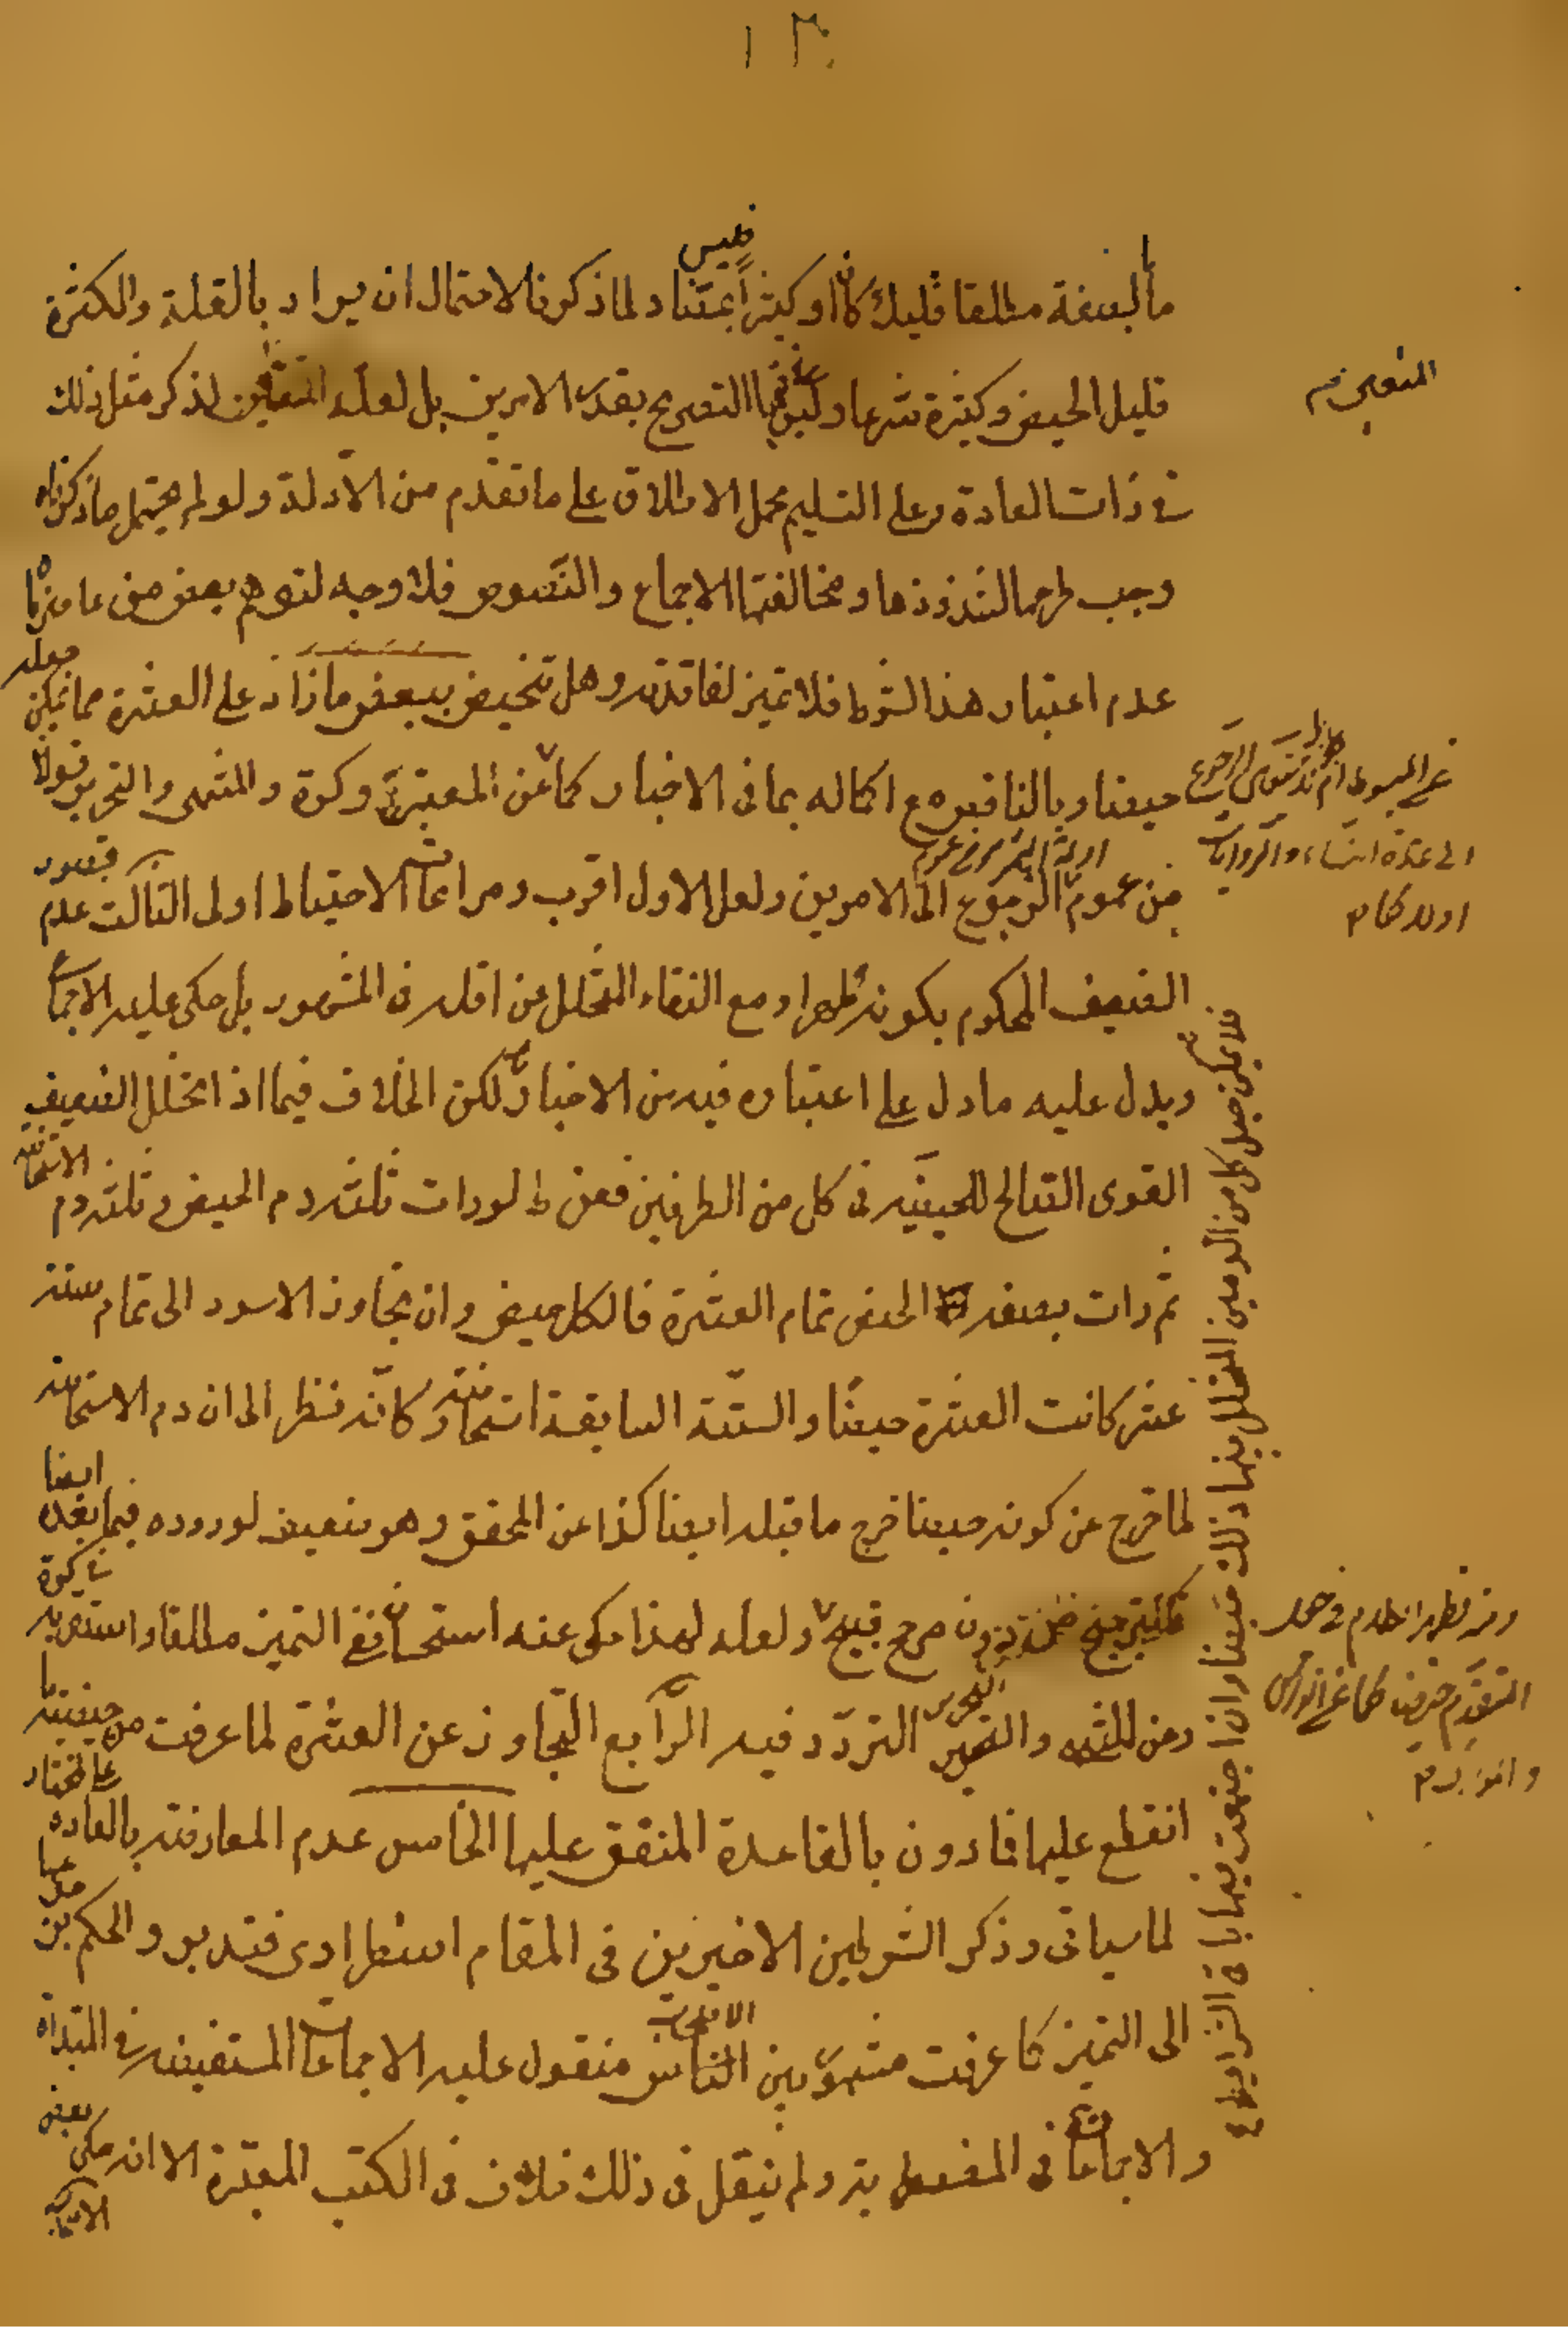 ١٣٠
ما بالصفة مطلقا قليلا كان او كثيرا فليس بمعتاد لما ذكرونا لاحتمال ان يراد بالقلة والكثرة
قليل الحيض وكثيرة شرعا وليس فيها التصريح بقدر الامرين بل لعله المتعين لذكر مثل ذلك
في ذات العادة وعلى التسليم يحمل الاطلاق على ما تقدم من الادلة ولو لم يحتمل ما ذكرناه
وجب طرحها لشذوذها ومخالفتها الاجماع والنصوص فلا وجه لتوهم بعض من عاصرناه
عدم اعتبار هذا الشرط فلا تميز لفاقدته وهل تتحيض ببعض ما زاد على العشرة مما يمكن جعله
حيضا وبالناقص مع اكماله بما في الاخبار كما عن المعتبر وكرة والمنتهى والتحرير قولان
من عموم الرجوع الى الامرين ولعل الاول اقرب ومراعاة الاحتياط اولى الثالث عدم قصور
الضعيف المحكوم بكونه طهرا ومع النقاء المتخلل عن اقله في المشهور بل حكى عليه الاجماع
ويدل عليه ما دل على اعتباره فيه من الاخبار لكن الخلاف فيما اذا تخلل الضعيف
القوى الصالح للحيضيه في كل من الطرفين فعن ط لو رات ثلثه دم الحيض وثلثه دم الاستحاضه
ثم رات بصفه الحيض تمام العشرة فالكل حيض وان تجاوز الاسود الى تمام سته
عشر كانت العشرة حيضا والستة السابقة استحاضته وكانه نظر الى ان دم الاستحاضه
لما خرج عن كونه حيضا خرج ما قبله ايضا كذا عن المحقق وهو ضعيف لوروده فيما بعده ايضا
دون مرجح قبيح ولعله لهذا حكى عنه استحسان في كرة نفي التميز مطلقا واستقربه
وعن المنتهى والتحرير التردد فيه الرابع التجاوز عن العشرة لما عرفت من حيضيته ما
انقطع عليها فما دون بالقاعدة المتفق عليها الخامس عدم المعارضته بالعاده على المختار
لما سياتى وذكر الشرطين الاخيرين في المقام استطرادى فتدبر والحكم برجوعها
الى التميز كما عرفت مشهور بين الاصحاب منقول عليه الاجماعات المستفيضه في المبتداة
والاجماعات في المضطربة ولم ينقل في ذلك خلاف في الكتب المعتبرة الا انه حكى بعض
المتعين م
عن المبسوط
الى عادة النساء والروايات
فلا يمكن جعل كل من الدمين المتخلل بينهما ذلك حيضا وان اجتمعت فيهما باقى الشرايط